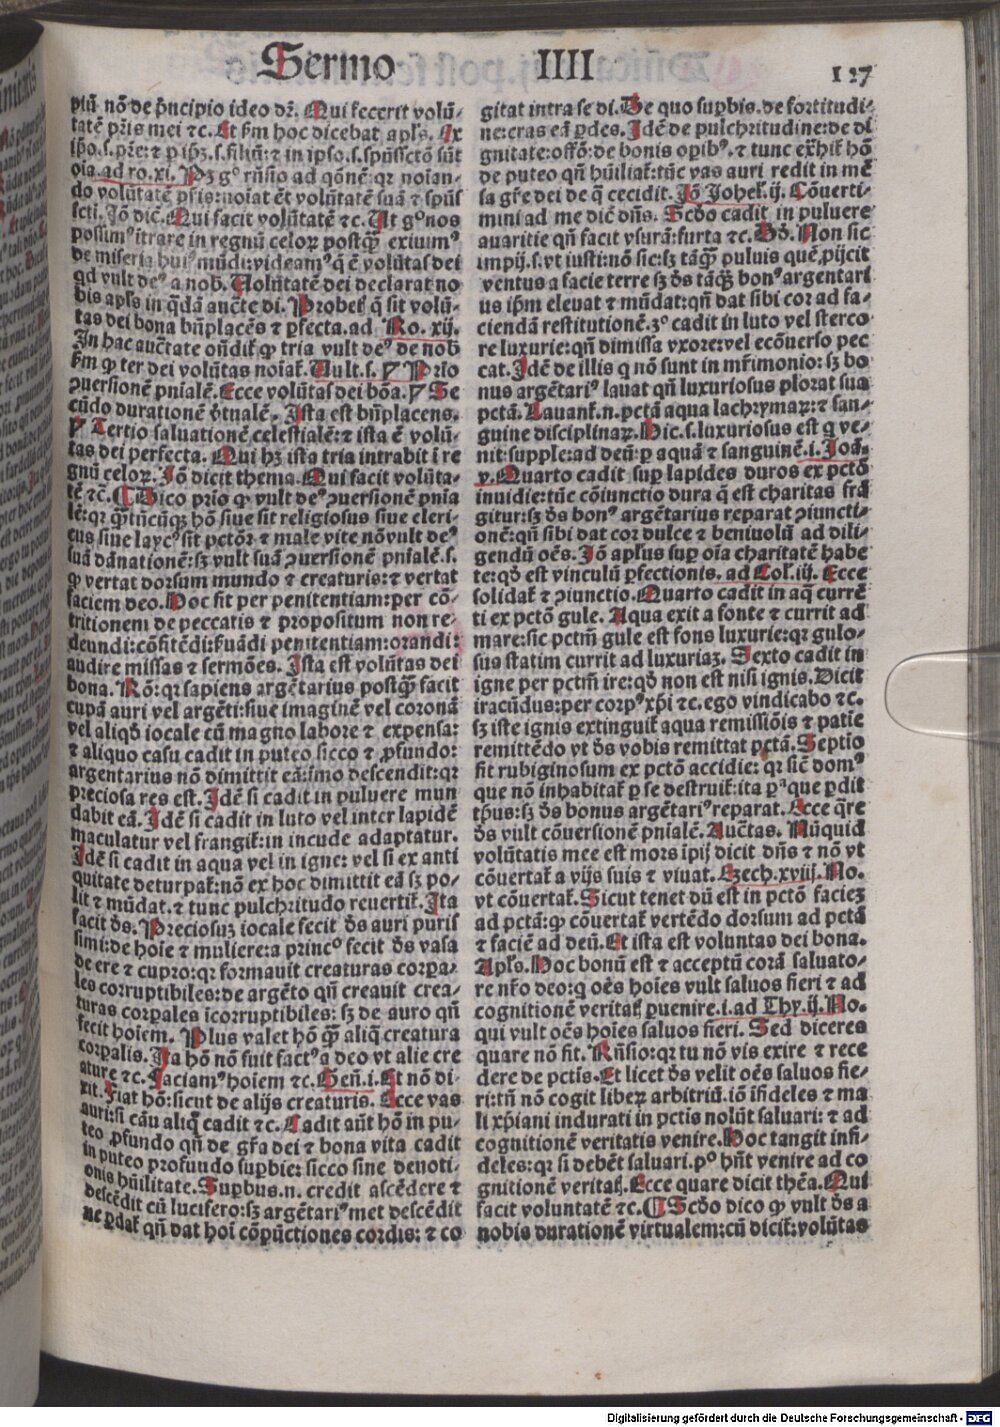 Sermo IIII 127
piū nō de p̄ncipio ideo dr̄. Qui fecerit volū-
tatē p̄ris mei ⁊c. Et ẜm hoc dicebat apl's. Ex
ip̄o.s.pr̄e:⁊ p ip̄ꝫ.s.filiū:⁊ in ipso.s.spūssctō sūt
oīa.ad ro.xi. Pꝫ gº rn̄sio ad qōnē:qꝛ noīan-
do volūtatē pr̄is:noīat ēt volūtatē suā ⁊ spūs
scti. Jō dic̄. Qui facit volūtatē ⁊c. Ut gº nos
possimꝰ ītrare in regnū celoꝝ postq̄ȝ exiuimꝰ
de miseria huiꝰ mūdi:videamꝰ q̄ ē volūtas dei
qd vult deꝰ a nob. Uolūtatē dei declarat no
bis apl's in q̄dā auc̄te di. Probet̄ q̄ sit volū-
tas dei bona bn̄placēs ⁊ pfecta.ad Ro. xij.
In hac auc̄tate on̄dit̄ ꝙ tria vult deꝰ de nob
ẜm ꝙ ter dei volūtas noīat̄. Uult.s. ¶ Prio
ↄuersionē pn̄ialē. Ecce volūtas dei bōa. ¶ Se
cūdo durationē v̄tualē. Ista est bn̄placens.
¶ Tertio saluationē celestialē:⁊ ista ē volū-
tas dei perfecta. Qui hꝫ ista tria intrabit ī re
gnū celoꝝ. Jō dicit thema. Qui facit volūta-
tē ⁊c. ¶ Dico prio ꝙ vult deꝰ ↄuersionē pn̄ia
lē:qꝛ q̄ntūcūqꝫ hō siue sit religiosus siue cleri-
cus siue laycꝰ sit pctōr ⁊ male vite nō vult deꝰ
suā dānationē:sꝫ vult suā ↄuersionē pn̄ialē.s.
ꝙ vertat dorsum mundo ⁊ creaturis:⁊ vertat
faciem deo. Hoc fit per penitentiam:per cō-
tritionem de peccatis ⁊ propositum non re-
deundi:cōfitēdi:ẜuādi penitentiam:orandi:
audire missas ⁊ sermōes. Ista est volūtas dei
bona. Rō:qꝛ sapiens argētarius postq̄ȝ facit
cupā auri vel argēti:siue imaginē vel coronā
vel aliqd iocale cū magno labore ⁊ expensa:
⁊ aliquo casu cadit in puteo sicco ⁊ ꝓfundo:
argentarius nō dimittit eā:imo descendit:qꝛ
preciosa res est. Jdē si cadit in puluere mun
dabit eā. Jdē si cadit in luto vel inter lapidē
maculatur vel frangit̄:in incude adaptatur.
Jdē si cadit in aqua vel in igne: vel si ex anti
quitate deturpat̄:nō ex hoc dimittit eā sꝫ po-
lit ⁊ mūdat.⁊ tunc pulchritudo reuertit̄. Ita
facit d's. Preciosuꝫ iocale fecit d's auri puris
simi:de hoīe ⁊ muliere:a princº fecit d's vasa
de ere ⁊ cupro:qꝛ formauit creaturas corpa-
les corruptibiles:de argēto qn̄ creauit crea-
turas corpales īcorruptibiles: sꝫ de auro qn̄
fecit hoīem. Plus valet hō q̄ȝ aliq̄ creatura
corpalis. Jta hō nō fuit factꝰ a deo vt alie cre
ature ⁊c. Faciamꝰ hoīem ⁊c. Gen̄.i. Et nō di-
xit. Fiat hō:sicut de alijs creaturis. Ecce vas
auri:si cāu aliq̄ cadit ⁊c. Cadit aūt hō in pu-
teo ꝓfundo qn̄ de gr̄a dei ⁊ bona vita cadit
in puteo profundo supbie: sicco sine deuoti-
onis hūilitate. Supbus.n. credit ascēdere ⁊
descēdit cū lucifero:sꝫ argētariꝰ met descēdit
ne pdat̄ qn̄ dat hoī cōpūctiones cordis: ⁊ co
gitat intra se di. De quo supbis.de fortitudi-
ne:cras eā pdes. Jdē de pulchritudine:de di
gnitate:offō:de bonis opibꝰ.⁊ tunc exhit̄ hō
de puteo qn̄ hūiliat̄:tūc vas auri redit in mē
sa gr̄e dei de q̄ cecidit. Jō Johel'.ij. Cōuerti-
mini ad me dic̄ dn̄s. Scdo cadit in puluere
auaritie qn̄ facit vsurā:furta ⁊c. Dd. Non sic
impij.s.vt iusti:nō sic:sꝫ tāq̄ȝ puluis quē ꝓijcit
ventus a facie terre sꝫ d's tāq̄ȝ bonꝰ argentari
us ip̄m eleuat ⁊ mūdat:qn̄ dat sibi cor ad fa-
ciendā restitutionē.3º cadit in luto vel sterco
re luxurie:qn̄ dimissa vxore:vel ecōuerso pec
cat. Jdē de illis q nō sunt in mr̄imonio: sꝫ bo
nus argētariꝰ lauat qn̄ luxuriosus plorat sua
pctā. Lauant̄.n.pctā aqua lachrymaꝝ:⁊ san-
guine disciplinaꝝ. Hic.s.luxuriosus est q ve-
nit:supple:ad deū:p aquā ⁊ sanguinē.i. Joā.
v. Quarto cadit sup lapides duros ex pctō
inuidie:tūc cōiunctio dura q̄ est charitas frā
gitur:sꝫ d's bonꝰ argētarius reparat ↄiuncti-
onē:qn̄ sibi dat cor dulce ⁊ beniuolū ad dili-
gendū oēs. Jō apl'us sup oīa charitatē habe
te:qd est vinculū pfectionis. ad Col'.iij. Ecce
solidat̄ ⁊ ↄiunctio. Quarto cadit in aq̄ currē
ti ex pctō gule. Aqua exit a fonte ⁊ currit ad
mare:sic pctm̄ gule est fons luxurie:qꝛ gulo-
sus statim currit ad luxuriaꝫ. Sexto cadit in
igne per pctm̄ ire:qd non est nisi ignis. Dicit
iracūdus:per corpꝰ xp̄i ⁊c.ego vindicabo ⁊c.
sꝫ iste ignis extinguit̄ aqua remissiōis ⁊ patie
remittēdo vt d's vobis remittat pctā. Septio
fit rubiginosum ex pctō accidie: qꝛ sicē domꝰ
que nō inhabitat̄ p se destruit̄:ita pꝰque pdit
tp̄us:sꝫ d's bonus argētariꝰ reparat. Ecce q̄re
d's vult cōuersionē pn̄ialē. Auc̄tas. Nūquid
volūtatis mee est mors īpij dicit dn̄s ⁊ nō vt
cōuertat̄ a vijs suis ⁊ viuat. Ezech.xviij. No.
vt cōuertat̄. Sicut tenet dū est in pctō facieꝫ
ad pctā:ꝙ cōuertat̄ vertēdo dorsum ad pctā
⁊ faciē ad deū. Et ista est voluntas dei bona.
Apl's. Hoc bonū est ⁊ acceptū corā saluato-
re nr̄o deo:q oēs hoīes vult saluos fieri ⁊ ad
cognitionē veritat̄ puenire.i.ad Thy.ij. No.
qui vult oēs hoīes saluos fieri. Sed diceres
quare nō fit. Rn̄sio:qꝛ tu nō vis exire ⁊ rece
dere de pctis. Et licet d's velit oēs saluos fie-
ri:tn̄ nō cogit liberꝝ arbitriū.iō īfideles ⁊ ma
li xp̄iani indurati in pctis nolūt saluari: ⁊ ad
cognitionē veritatis venire. Hoc tangit infi-
deles:qꝛ si debēt saluari.pº hn̄t venire ad co
gnitionē veritat̄. Ecce quare dicit thēa. Qui
facit voluntatē ⁊c. ¶ Scdo dico ꝙ vult d's a
nobis durationē virtualem:cū dicit̄:volūtas
Digitalisierung gefördert durch die Deutsche Forschungsgemeinschaft - DFG